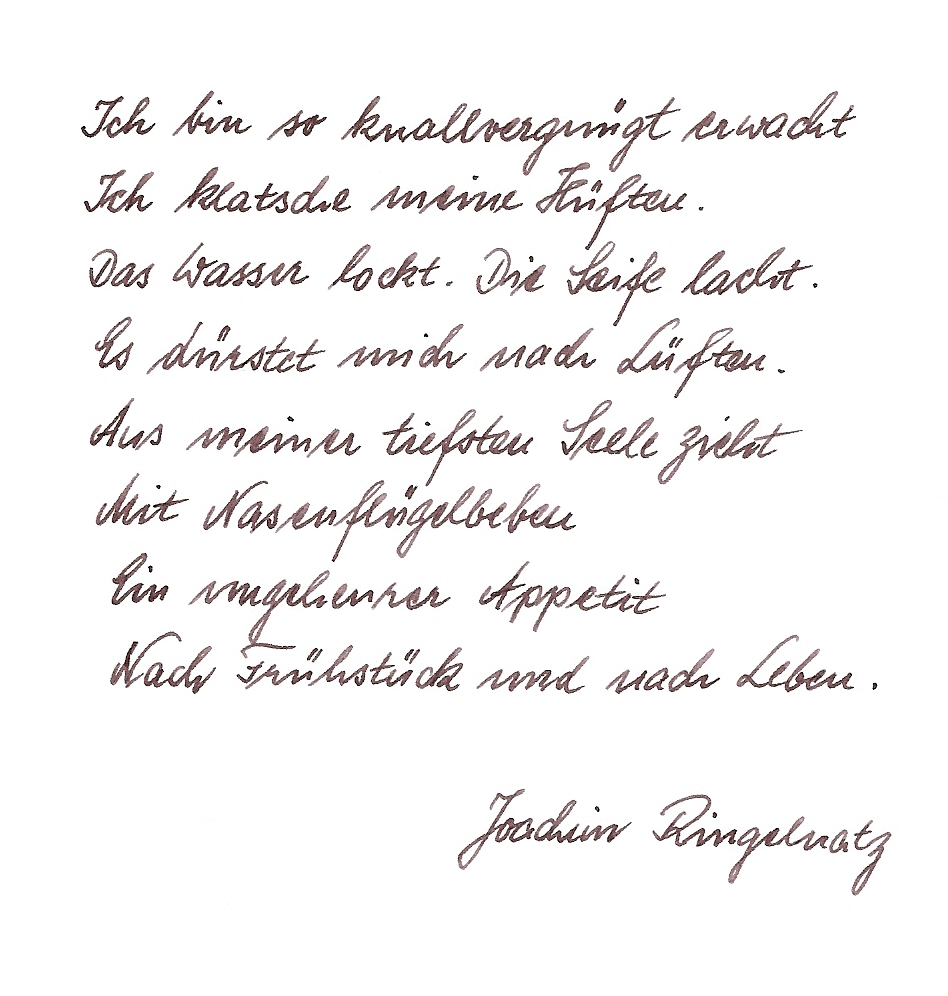 Ich bin so knallvergnügt erwacht
Ich klatsche meine Hüften.
Das Wasser lockt. Die Seife lacht.
Es dürstet mich nach Lüften.
Aus meiner tiefsten Seele zieht
Mit Nasenflügelbeben
Ein ungeheurer Appetit
Nach Frühstück und nach Leben.
Joachim Ringelnatz